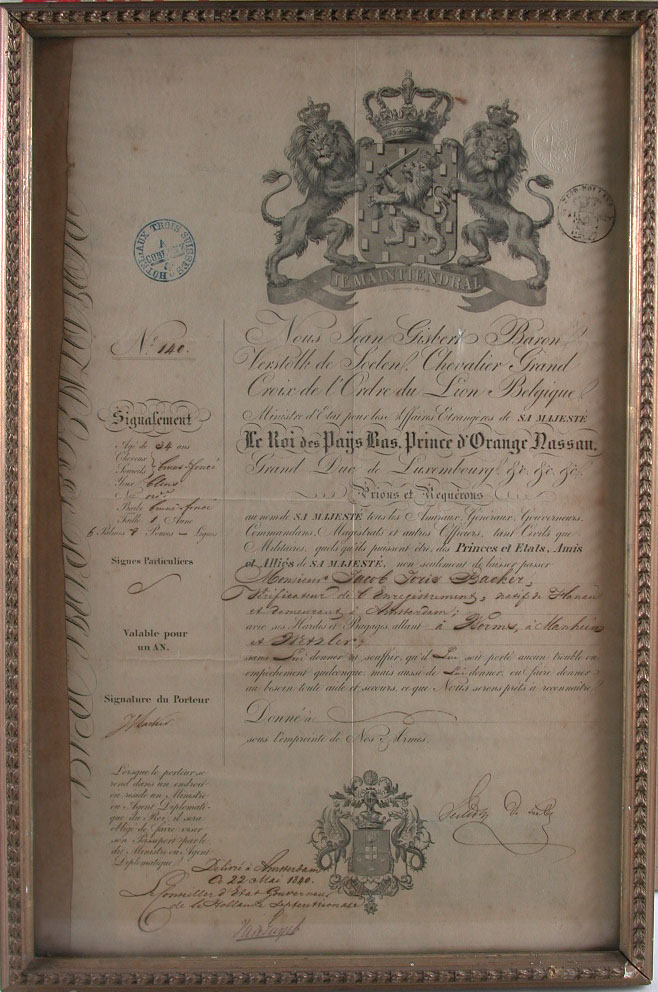 JE MAINTIENDRAI
HOTEL AUX TROIS SUISSES
Nº 140.
Nous Jean Gisbert Baron
Verstolk de Soelen, Chevalier Grand
Croix de l'Ordre du Lion Belgique,
Ministre d'État pour les Affaires Etrangères de SA MAJESTÉ
Le Roi des Païs Bas, Prince d'Orange Nassau,
Grand Duc de Luxembourg, &c. &c. &c.
Prions et Requérons
au nom de SA MAJESTÉ tous les Amiraux, Généraux, Gouverneurs,
Commandans, Magistrats et autres Officiers, tant Civils que
Militaires, quels qu'ils puissent être, des Princes et Etats, Amis
et Alliés de SA MAJESTÉ, non seulement de laisser passer
Monsieur Jacob Joris Backer,
Vérificateur de l'enregistrement, natif de
et demeurant à Amsterdam;
avec ses Hardes et Bagages allant à Worms, à Manheim
et Wetzlar;
sans Lui donner ni souffrir, qu'il Lui soit porté aucun trouble ou
empêchement quelconque mais aussi de Lui donner, ou faire donner
au besoin toute aide et secours, ce que Nous serons prêts à reconnaître.
Donné à
sous l'empreinte de Nos Armes.
Signalement
Agé de 34 ans
Cheveux
Sourcils brun-foncé
Yeux bleus
Nez
Barbe brun-foncé
Taille 1 Aune
6 Palmes 8 Pouces — Lignes
Signes Particuliers
Valable pour
un AN.
Signature du Porteur
JJBacker
Lorsque le porteur se
rend dans un endroit
où reside un Ministre
ou Agent Diplomati-
que du Roi, il sera
obligé de faire viser
son Passeport par le
dit Ministre ou Agent
Diplomatique.
Délivré à Amsterdam
Ce 22 Mai 1840.
Le Conseiller d'Etat Gouverneur
de la Hollande Septentrionale